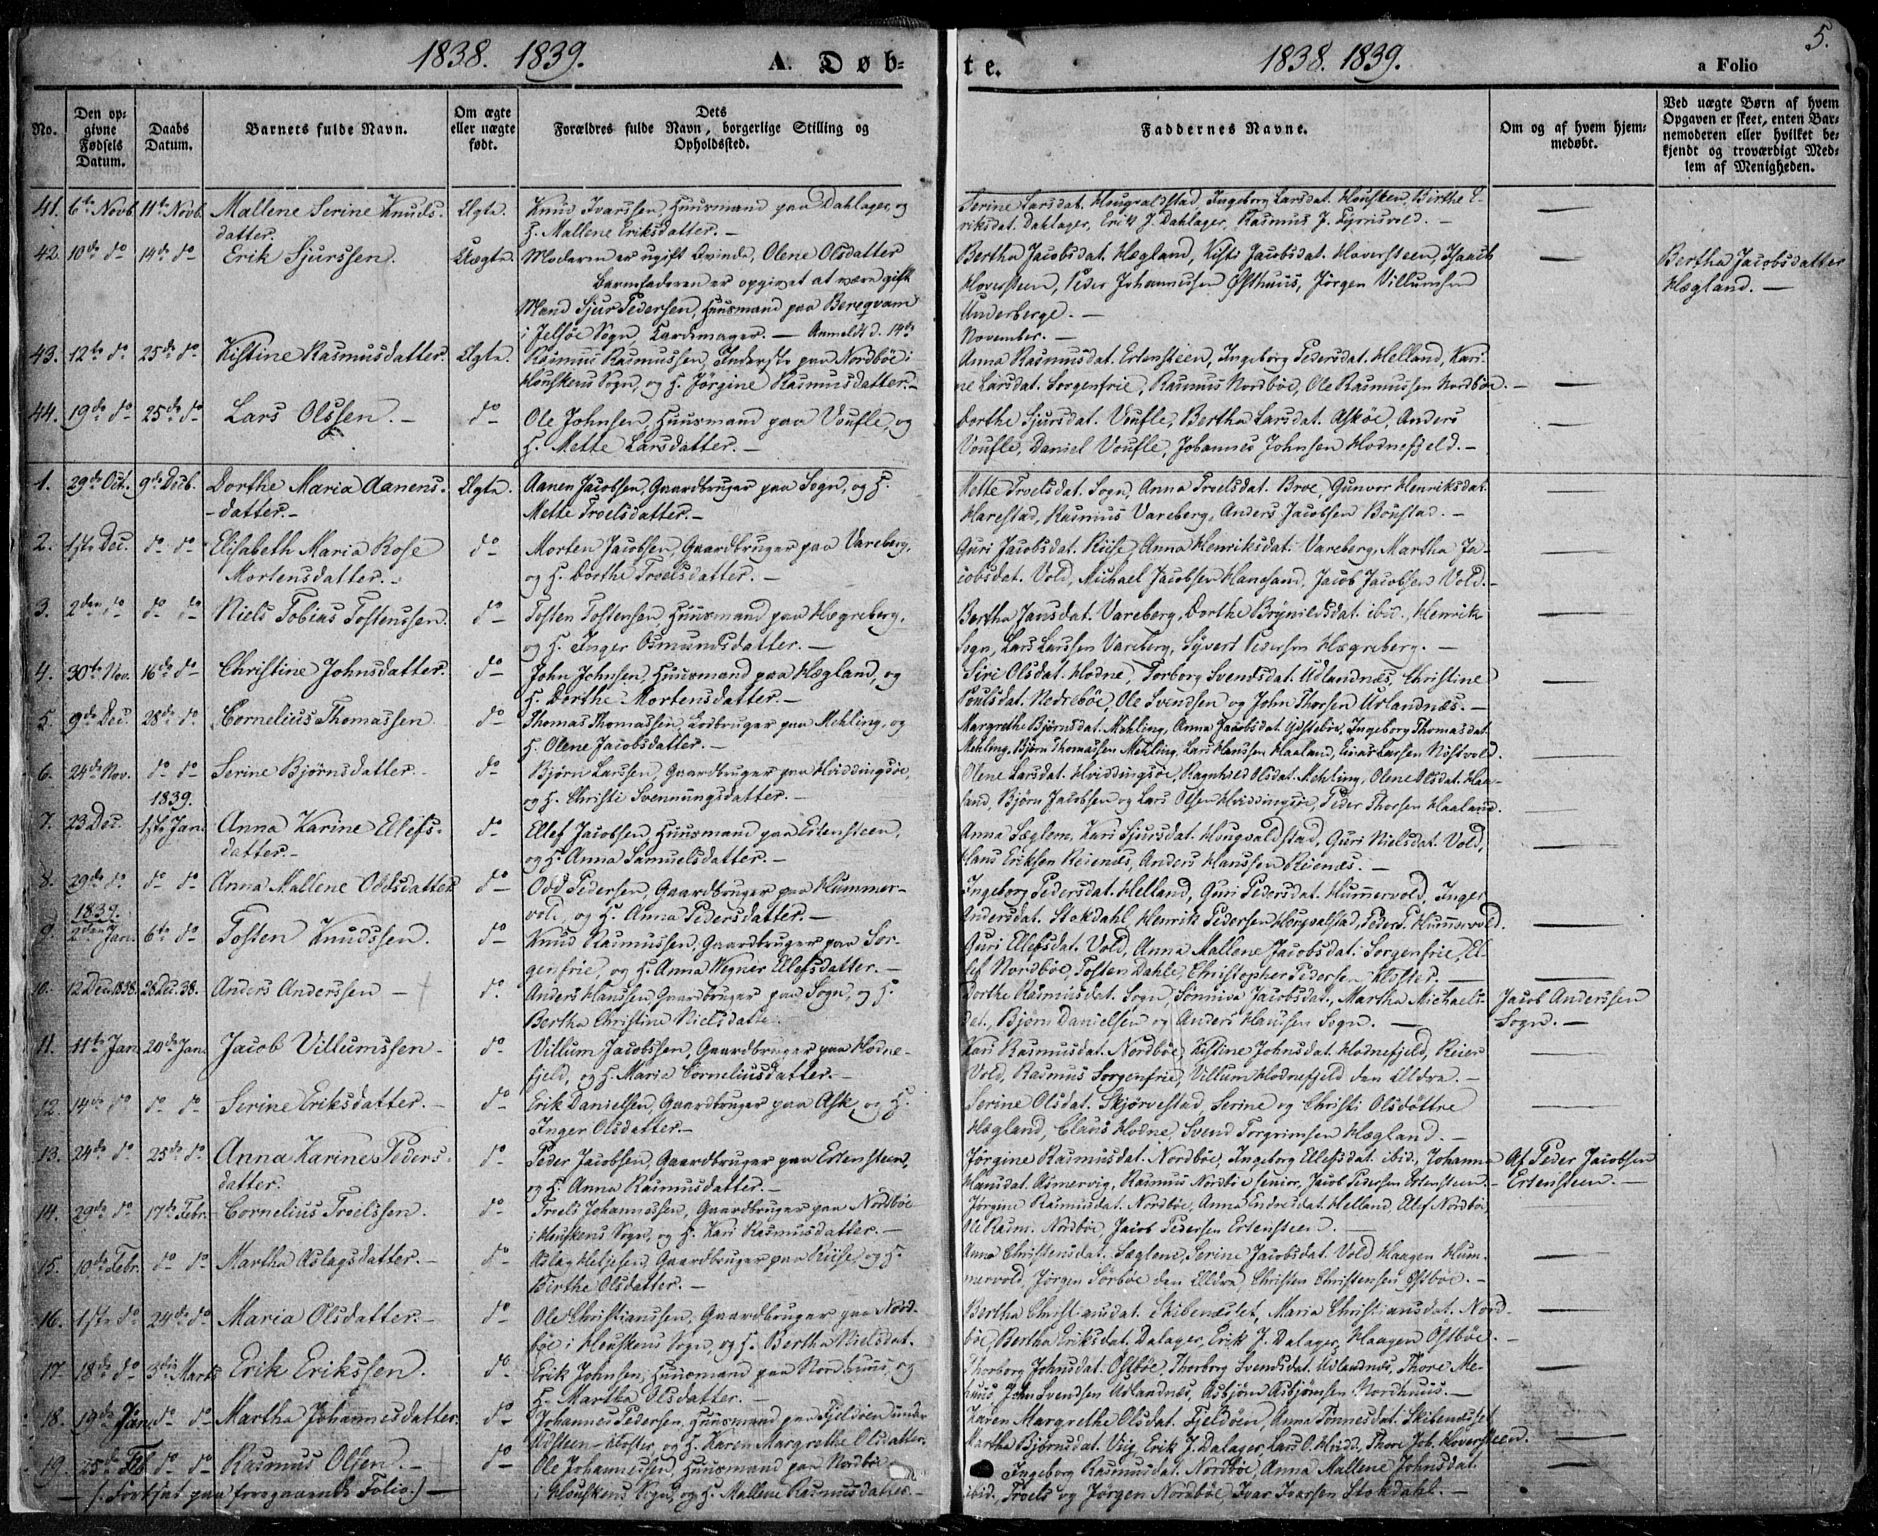 1838. 1839.
A. Døb=
te.
1838. 1839.
a Folio
5.
No.
Den op=
givne
Fødsels
Datum.
Daabs
Datum.
Barnets fulde Navn.
Om ægte
eller uægte
født.
Dets
Forældres fulde Navn, borgerlige Stilling og
Opholdssted.
Faddernes Navne.
Om og af hvem hjem=
medøbt.
Ved uægte Børn af hvem
Opgaven er skeet, enten Bar=
nemoderen eller hvilket be=
kjendt og troværdigt Med=
lem af Menigheden.
41. 6te Novb. 11te Novb. Mallene Serine Knuds- Ægte. Knud Ivarssen, Huusmand paa Dahlager, og Serine Larsdat. Hougvaldstad, Ingeborg Larsdat. Housken, Birthe E-
datter. H. Mallene Eriksdatter. — riksdat. Dahlager, Erik J. Dahlager, Rasmus J. —
42. 10de do 14de do Erik Sjurssen. Uægte. Moderen er ugift Qvinde, Olene Olsdatter Bertha Jacobsdat. Hægland, Kisti Jacobsdat. Hoversteen, Isaach — Bertha Jacobsdatter
Barnefaderen er opgivet at være gift Hoversteen, Peder Johannessen Østhuus, Jørgen Villumsen Hægland. —
Mand Sjur Pedersen, Huusmand paa Bereqvam Underberge. —
i Jelsøe Sogn, — Anmeldt d. 14de November. —
43. 12te do 25de do Kistine Rasmusdatter. Ægte. Rasmus Rasmussen, Inderste paa Nordbøe i Anna Rasmusdat. Ertensteen, Ingeborg Pedersdat. Helland, Kari-
Houskens Sogn, og H. Jørgine Rasmusdatter. — ne Larsdat. Sorgenfrie, Rasmus Nordbøe, Ole Rasmussen Nordbøe. —
44. 19de do 25de do Lars Olssen. — do Ole Johnsen, Huusmand paa Voufle, og Dorthe Sjursdat. Voufle, Bertha Larsdat. Askøe, Anders
H. Mette Larsdatter. — Voufle, Daniel Voufle, Johannes Johnsen Hodnefjeld. —
1. 29de Oct. 9de Decb. Dorthe Maria Aanens- Ægte. Aanen Jacobsen, Gaardbruger paa Sogn, og H. Mette Troelsdat. Sogn, Anna Troelsdat. Broe, Gunvor Henriksdat.
-datter. — Mette Troelsdatter. — Harestad, Rasmus Vareberg, Anders Jacobsen Boustad. —
2. 1ste Dec. do do Elisabeth Maria Rose do Morten Jacobsen, Gaardbruger paa Vareberg, Guri Jacobsdat. Riise, Anna Henriksdat. Vareberg, Martha Ja-
Mortensdatter. — og H. Dorthe Troelsdatter. — cobsdat. Vold, Michael Jacobsen Hanasand, Jacob Jacobsen Vold. —
3. 2den do do do Niels Tobias Tostenssen. do Tosten Tostensen, Huusmand paa Hægreberg, Bertha Jansdat. Vareberg, Dorthe Brynildsdat. ibid., Henrik
og H. Inger Osmundsdatter. — Sogn, Lars Larssen Vareberg, Syvert Pedersen Hægreberg. —
4. 30te Nov. 16de do Christine Johnsdatter. do John Johnsen, Huusmand paa Hægland, og Siri Olsdat. Hodne, Torborg Svendsdat. Udlandnæs, Christine
H. Dorthe Mortensdatter. — Poulsdat. Nedrebøe, Ole Svendsen og John Thorsen Udlandnæs. —
5. 9de Dec. 28de do Cornelius Thomassen. do Thomas Thomassen, Losbruger paa Mehling, og Margrethe Bjørnsdat. Mehling, Anna Jacobsdat. Ydstebøe, Ingeborg Thomasdat.
H. Olene Jacobsdatter. — Mehling, Bjørn Thomassen Mehling, Lars Hanssen Haaland, Einar Larsen Nøstvold.
6. 24de Nov. do do Serine Bjørnsdatter. — do Bjørn Larssen, Gaardbruger paa Hviddingsøe, Olene Larsdat. Hviddingsøe, Ragnhild Olsdat. Mehling, Olene Olsdat. Haa-
og H. Christi Svennungsdatter. — land, Bjørn Jacobsen og Lars Olsen Hviddingsøe, Peder Thorsen Haaland.
1839.
7. 23 Dec. 1ste Jan. Anna Karine Elefs- do Ellef Jacobsen, Huusmand paa Ertensteen, Anna Sæglem, Kari Sjursdat. Hougvaldstad, Guri Nielsdat. Vold,
datter. — og H. Anna Samuelsdatter. — Hans Eriksen Reienæs, Anders Hanssen Reienæs. —
8. 29de do do do Anna Mallene Oddsdatter do Odd Pedersen, Gaardbruger paa Hummer- Ingeborg Pedersdat. Helland, Guri Pedersdat. Hummervold, Inger
vold, og H. Anna Pedersdatter. — Andersdat. Stokdahl, Henrik Pedersen Hougvalstad, Peder P. Hummervold.
1839.
9. 2den Jan. 6te do Tosten Knudssen. do Knud Rasmussen, Gaardbruger paa Sor- Guri Ellefsdat. Vold, Anna Mallene Jacobsdat. Sorgenfrie, El-
genfrie, og H. Anna Wegner Ellefsdatter. — lef Nordbøe, Tosten Dahle, Christopher Pedersen Kloster. —
10. 12 Dec. 1838. 28 Dec. 38. Anders Anderssen — do Anders Hanssen, Gaardbruger paa Sogn, og H. Dorthe Rasmusdat. Sogn, Sønniva Jacobsdat., Martha Michaels- Jacob Anderssen
Bertha Christine Nielsdatter. dat., Bjørn Danielsen og Anders Hanssen Sogn. — Sogn. —
11. 11te Jan. 20de Jan. Jacob Villumssen. do Villum Jacobssen, Gaardbruger paa Hodne- Kari Rasmusdat. Nordbøe, Kistine Johnsdat. Hodnefjeld, Reier
fjeld, og H. Maria Corneliusdatter. — Vold, Rasmus Sorgenfrie, Villum Hodnefjeld den Ældre. —
12. 14de do do do Serine Eriksdatter. — do Erik Danielsen, Gaardbruger paa Ask, og H. Serine Olsdat. Skjørvestad, Serine og Christi Olsdøttre
Inger Olsdatter. — Hægland, Claus Hodne, Svend Torgrimsen Hægland. —
13. 24de do 25de do Anna Karine Peders- do Peder Jacobsen, Gaardbruger paa Ertensteen, Jørgine Rasmusdat. Nordbøe, Ingeborg Ellefsdat. ibid., Johanna Af Peder Jacobsen
datter. og H. Anna Rasmusdatter. — Hansdat. Asmervig, Rasmus Nordbøe senior, Jacob Pedersen Ertensteen. — Ertensteen. —
14. 29de do 17de Febr. Cornelius Troelssen. do Troels Johannessen, Gaardbruger paa Nordbøe Jørgine Rasmusdat. Nordbøe, Anna Endresdat. Helland, Elef Nordbøe,
i Houskens Sogn, og H. Kari Rasmusdatter. — Ol. Rasm. Nordbøe, Jacob Pedersen Ertensteen. —
15. 10de Febr. do do Martha Aslagsdatter. — do Aslag Helgesen, Gaardbruger paa Riise, og H. Anna Christensdat. Sæglem, Serine Jacobsdat. Vold, Haagen Hum-
Birthe Olsdatter. — mervold, Jørgen Sørbøe den Ældre, Christen Christensen Østbøe. —
16. 1ste do 24de do Maria Olsdatter. — do Ole Christianssen, Gaardbruger paa Nord- Bertha Christiansdat. Skibenæstet, Maria Christiansdat. Nord-
bøe i Houskens Sogn, og H. Bertha Nielsdat. bøe, Bertha Eriksdat. Dalager, Erik J. Dalager, Haagen Østbøe. —
17. 18de do 3die Marts Erik Erikssen. do Erik Johnsen, Huusmand paa Nordhuus, og Thorborg Johnsdat. Østbøe, Thorborg Svendsdat. Udlandnæs, Thore Me-
H. Martha Olsdatter. — huus, John Svendsen Udlandnæs, Asbjørn Asbjørnsen Nordhuus. —
18. 19de Jan. do do Martha Johannesdatter. do Johannes Pedersen, Huusmand paa Fjeldøen under Karen Margrethe Olsdat. Fjeldøen, Anna Tønnesdat. Skibenæsset,
Udsteen-Kloster, og H. Karen Margrethe Olsdatter. Martha Bjørnsdat. Viig, Erik J. Dalager, Lars O. Hvid., Thore Joh. Hoversteen.
19. 25de Feb. do do Rasmus Olsen. — do Ole Johannessen, Huusmand paa Nordbøe Ingeborg Rasmusdat. Nordbøe, Anna Mallene Johnsdat.
— (: Fortsat paa foregaaende Folio:) — i Houskens Sogn, og H. Mallene Rasmusdatter. — ibid., Troels og Jørgen Nordbøe, Ivar Ivarsen Stokdahl. —